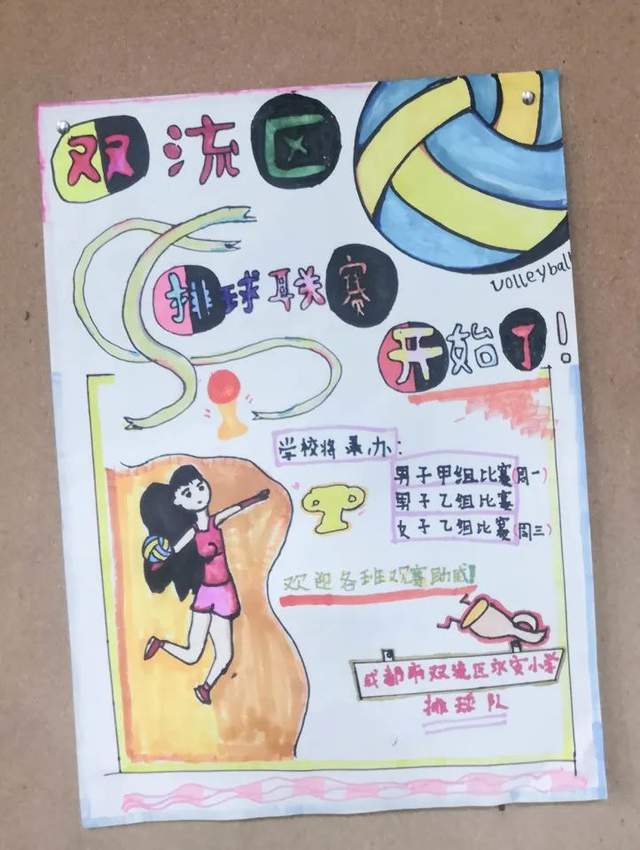 双流区
排球联赛
volleyball
开始了!
学校将承办:
男子甲组比赛(周一)
男子乙组比赛
女子乙组比赛(周三)
欢迎各班观赛助威!
成都市双流区永安小学
排球队